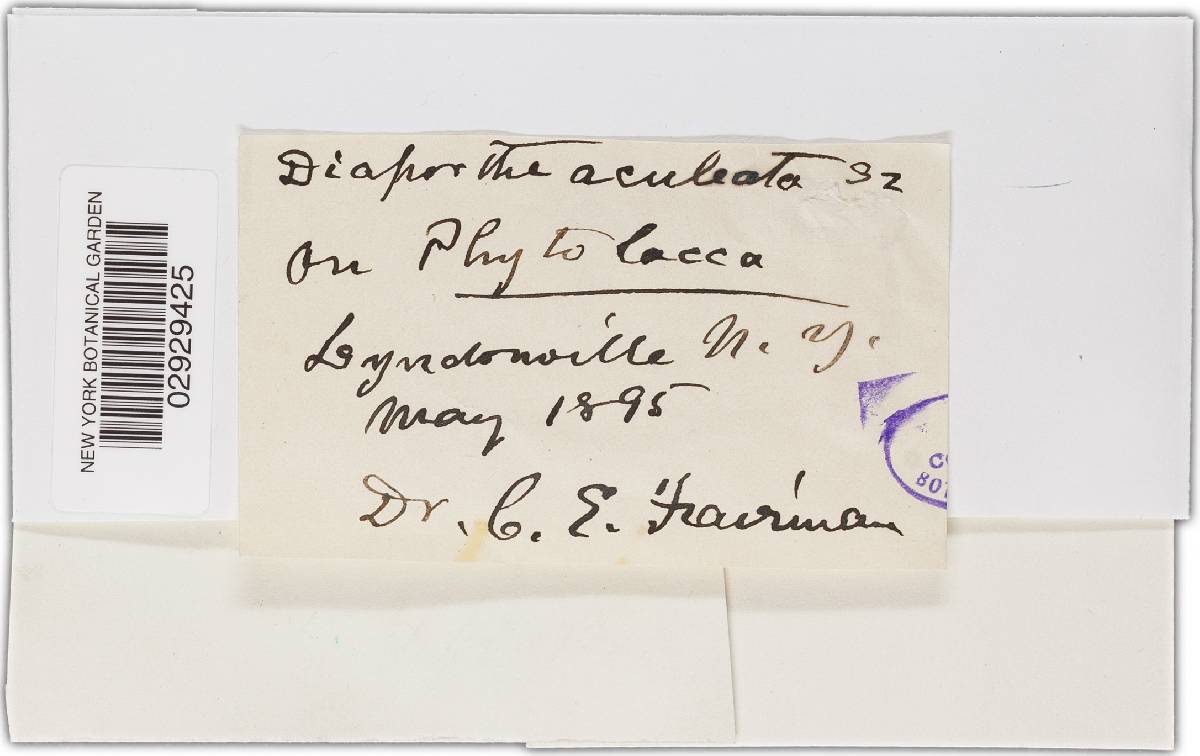 NEW YORK BOTANICAL GARDEN
02929425
Diaporthe aculeata Sz
on Phytolacca
Lyndonville N. Y.
May 1895
Dr. C. E. Fairman